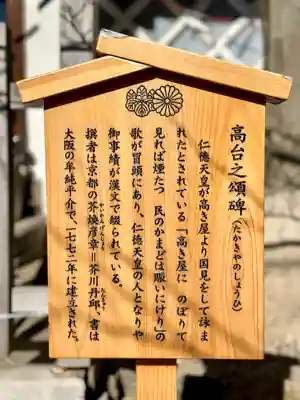 高台之頌碑（たかきやのしょうひ）
仁徳天皇が高き屋より国見をして詠ま
れたとされている「高き屋に のぼりて
見れば煙たつ 民のかまどは賑いにけり」の
歌が冒頭にあり、仁徳天皇の人となりや
御事績が漢文で綴られている。
撰者は京都の芥煥彦章＝芥川丹邱、書は
大阪の牟純平介で、一七七二年に建立された。